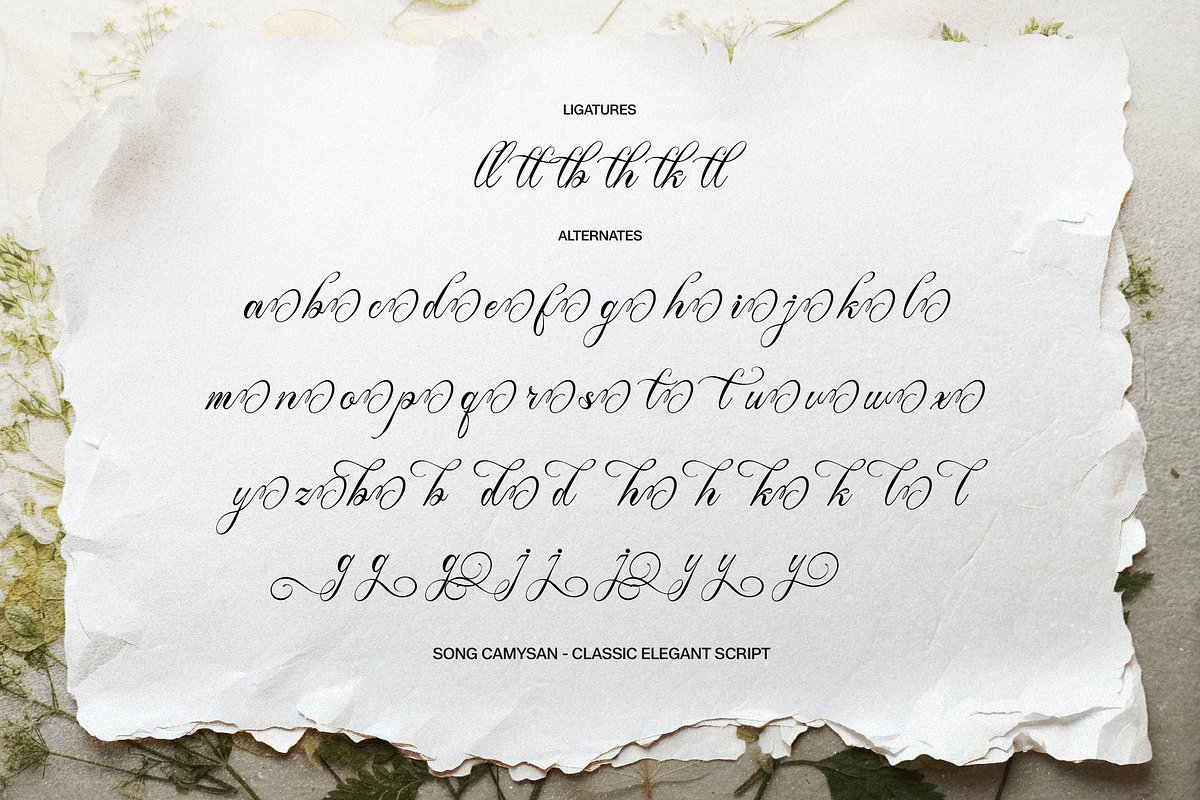 LIGATURES
ll tt tb th tk tl
ALTERNATES
a b c d e f g h i j k l
m n o p q r s t t u v w x
y z b b d d h h k k l l
g g g j j j y y y
SONG CAMYSAN - CLASSIC ELEGANT SCRIPT